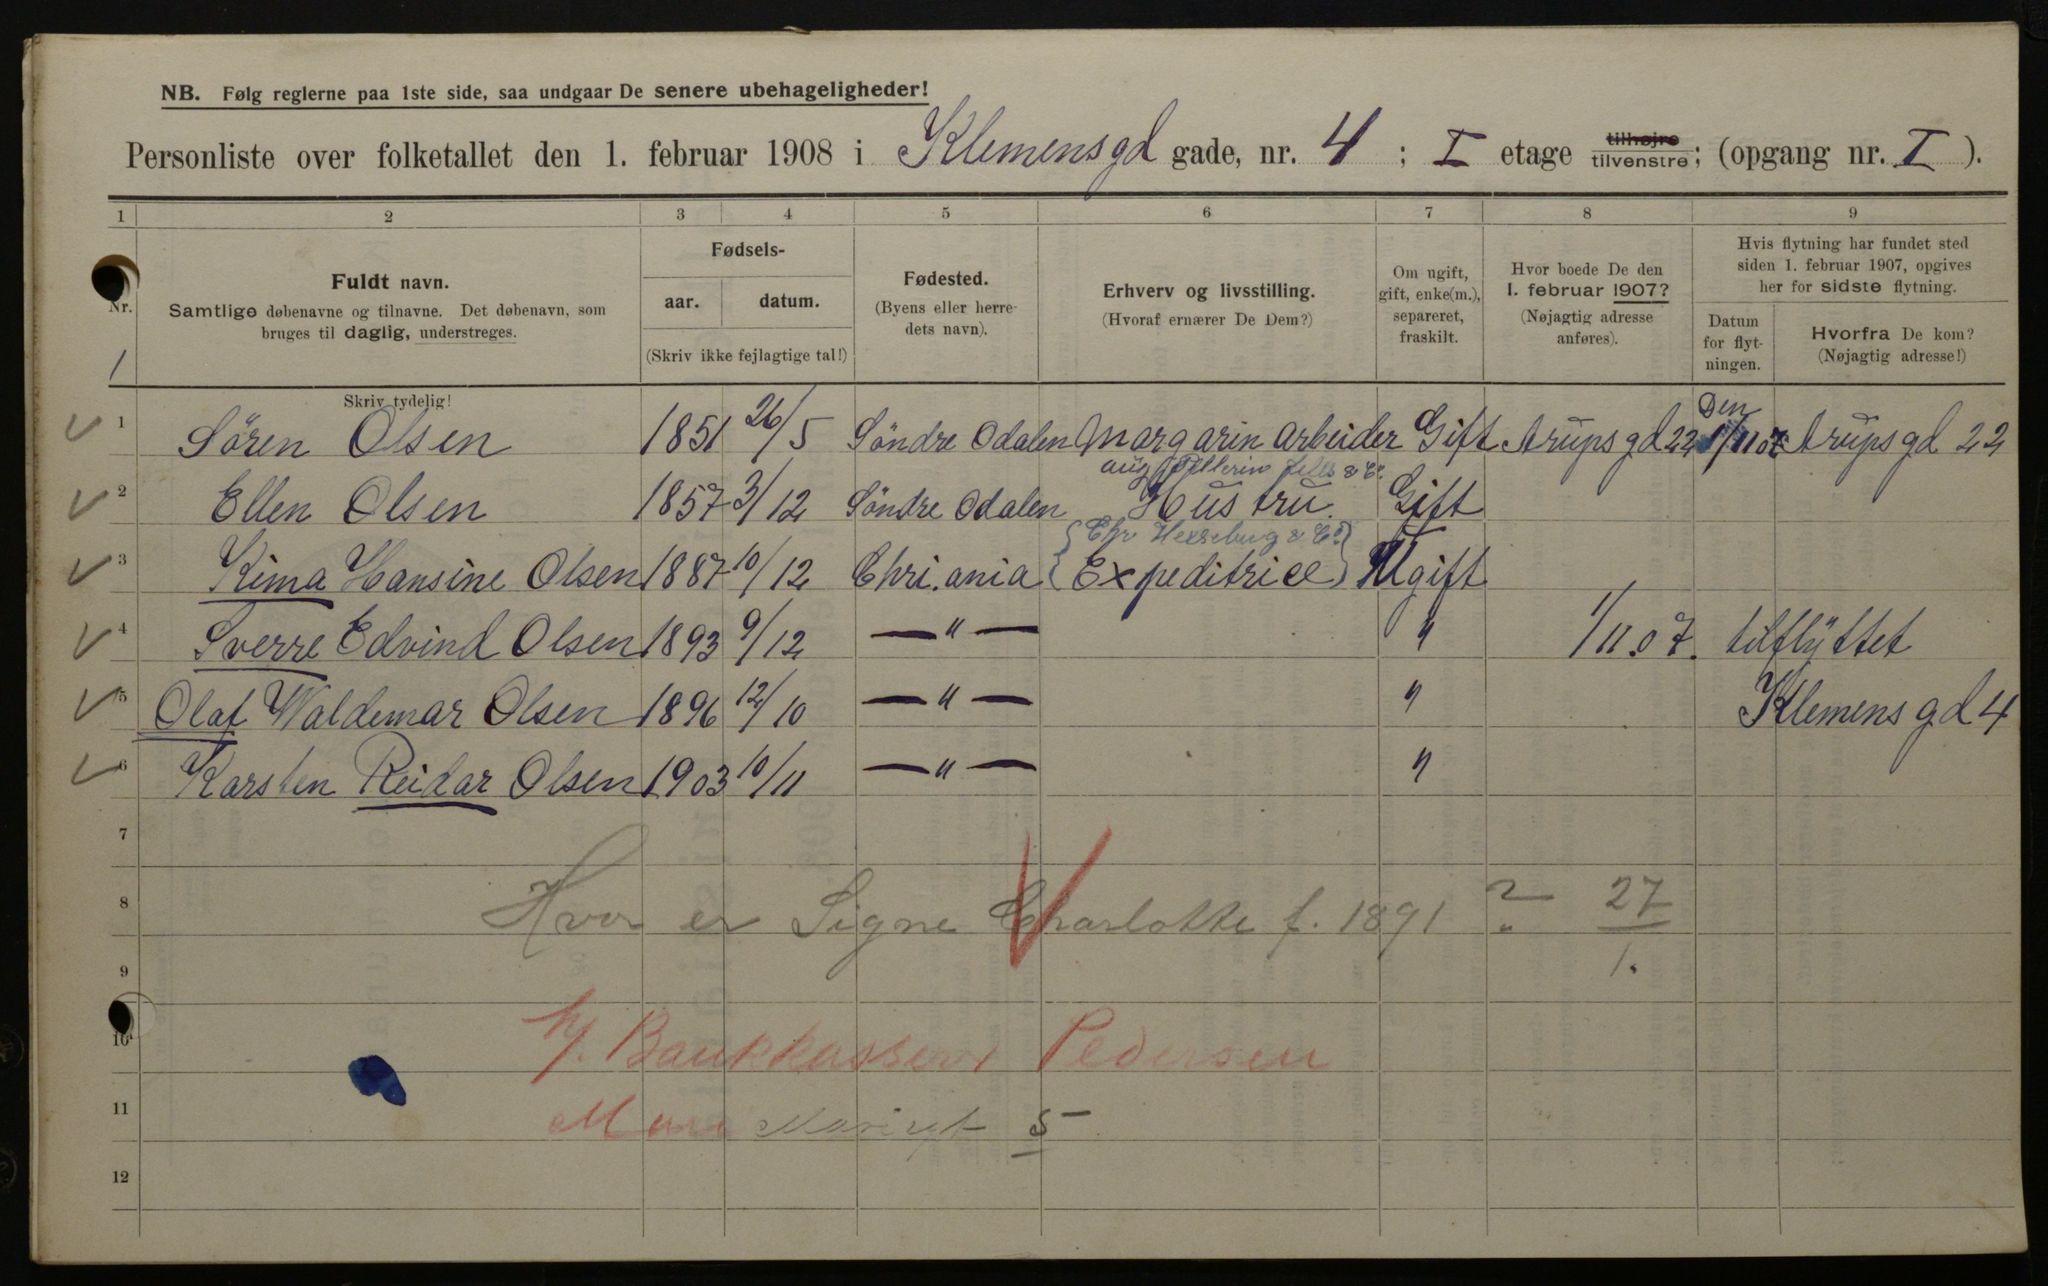 NB. Følg reglerne paa 1ste side, saa undgaar De senere ubehageligheder!
Personliste over folketallet den 1. februar 1908 i Klemensgd gade, nr. 4 ; I etage tilhøjre tilvenstre; (opgang nr. I ).
1 2 3 4 5 6 7 8 9
Nr.
1
Fuldt navn.
Samtlige døbenavne og tilnavne. Det døbenavn, som
bruges til daglig, understreges.
Skriv tydelig!
Fødsels-
aar. datum.
(Skriv ikke fejlagtige tal!)
Fødested.
(Byens eller herre-
dets navn).
Erhverv og livsstilling.
(Hvoraf ernærer De Dem?)
Om ugift,
gift, enke(m.),
separeret,
fraskilt.
Hvor boede De den
1. februar 1907?
(Nøjagtig adresse
anføres).
Hvis flytning har fundet sted
siden 1. februar 1907, opgives
her for sidste flytning.
Datum
for flyt-
ningen.
Hvorfra De kom?
(Nøjagtig adresse!)
Den
1 Sören Olsen 1851 26/5 Söndre Odalen Margarin arbeider Gift Arupsgd 22 1/11 07 Arupsgd 22
aug Pellerin fils & Co.
2 Ellen Olsen 1857 3/12 Söndre Odalen Hustru. Gift
3 Kima Hansine Olsen 1887 10/12 Chri.ania {Expeditrice} Ugift
4 Sverre Edvind Olsen 1893 9/12 — " — " 1/11.07. tilflyttet
5 Olaf Waldemar Olsen 1896 12/10 — " — " Klemensgd 4
6 Karsten Reidar Olsen 1903 10/11 — " — "
7
8 Hvor er Signe Charlotte f. 1891 ? 27/1.
9
10 h/. Bankkasserer Pedersen
11 5
12